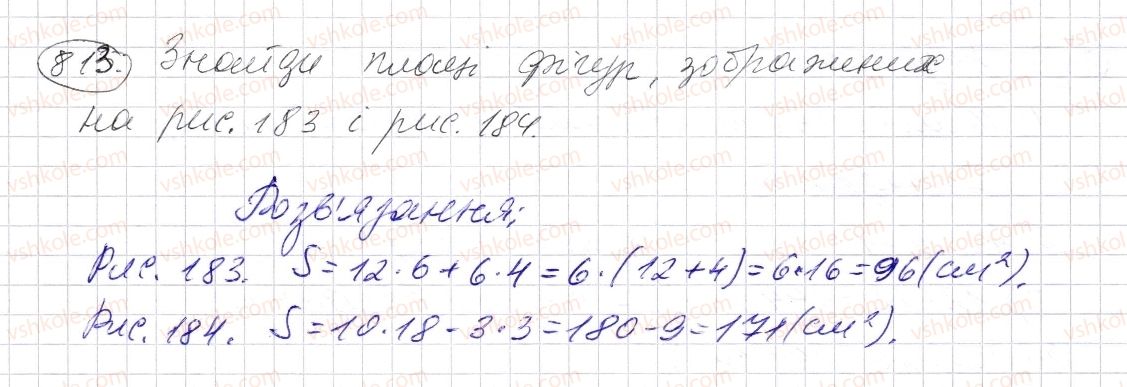 813. Знайди площі фігур, зображених
на рис. 183 і рис. 184.
Розв'язання:
Рис. 183. S = 12 · 6 + 6 · 4 = 6 · (12 + 4) = 6 · 16 = 96 (см²).
Рис. 184. S = 10 · 18 - 3 · 3 = 180 - 9 = 171 (см²).
vshkole.com